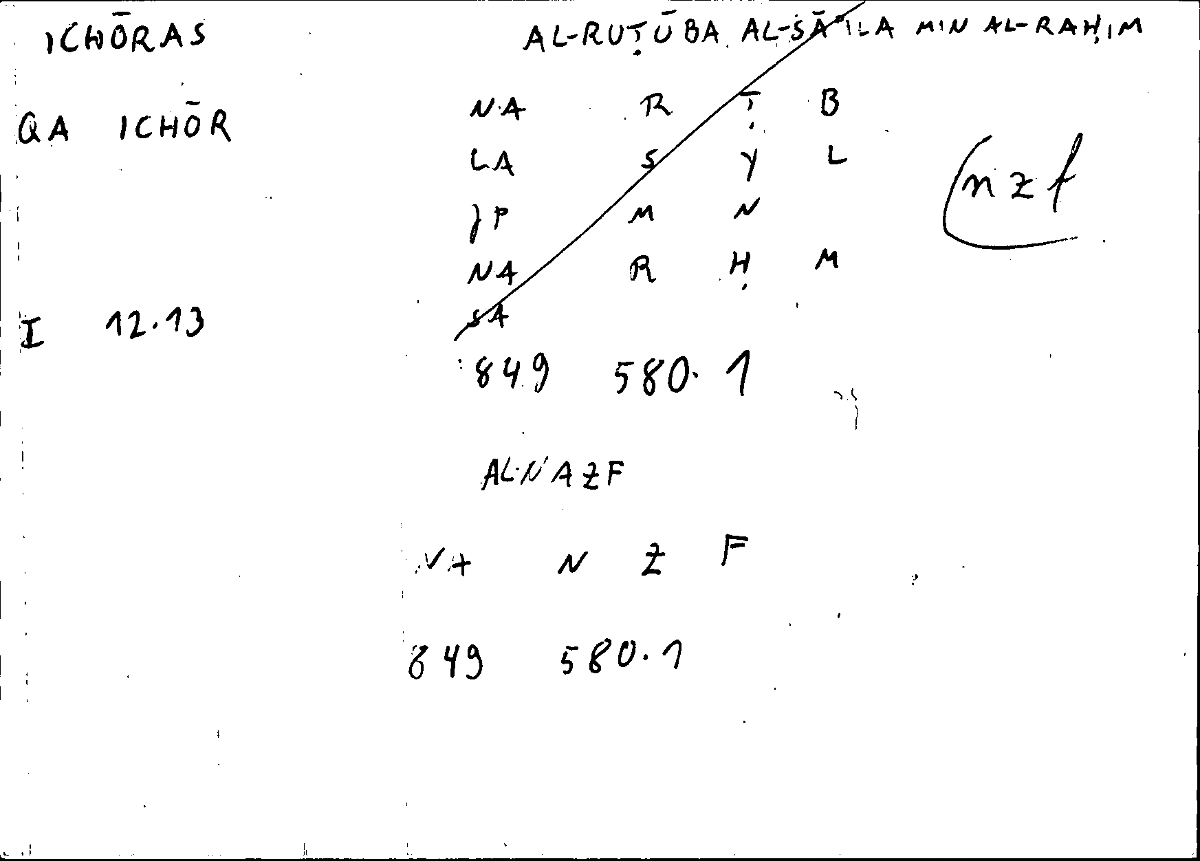 ICHŌRAS AL-RUṬŪBA AL-SĀʾILA MIN AL-RAḤIM
QA ICHŌR NA R Ṭ B
LA S Y L
JP M N
NA R Ḥ M
SA
(nzf
I 12.13
849 580.1
AL-NAZF
NA N Z F
849 580.1